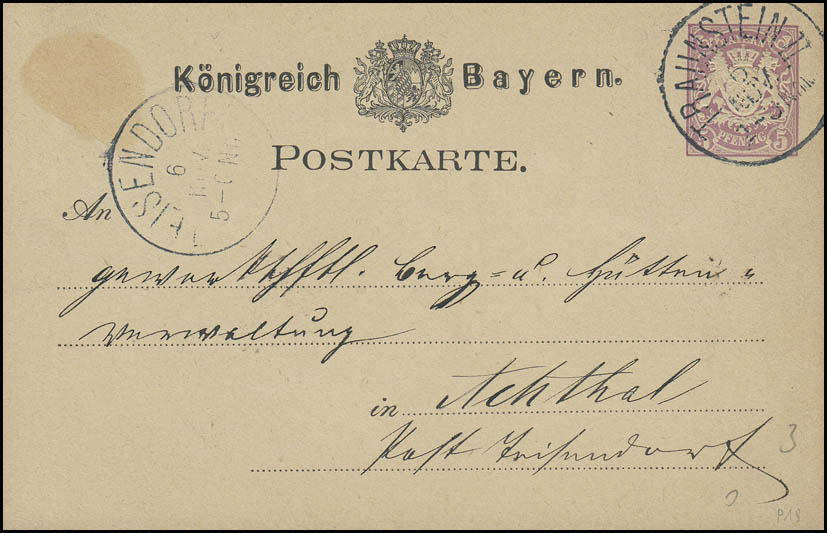 Königreich Bayern.
POSTKARTE.
TRAUNSTEIN II
PFENNIG
5 5
TEISENDORF
6
NOV
5–6 NM
An
gewerkschftl. Berg= u. Hütten=
Verwaltung
in Achthal
Post Teisendorf
3
P19